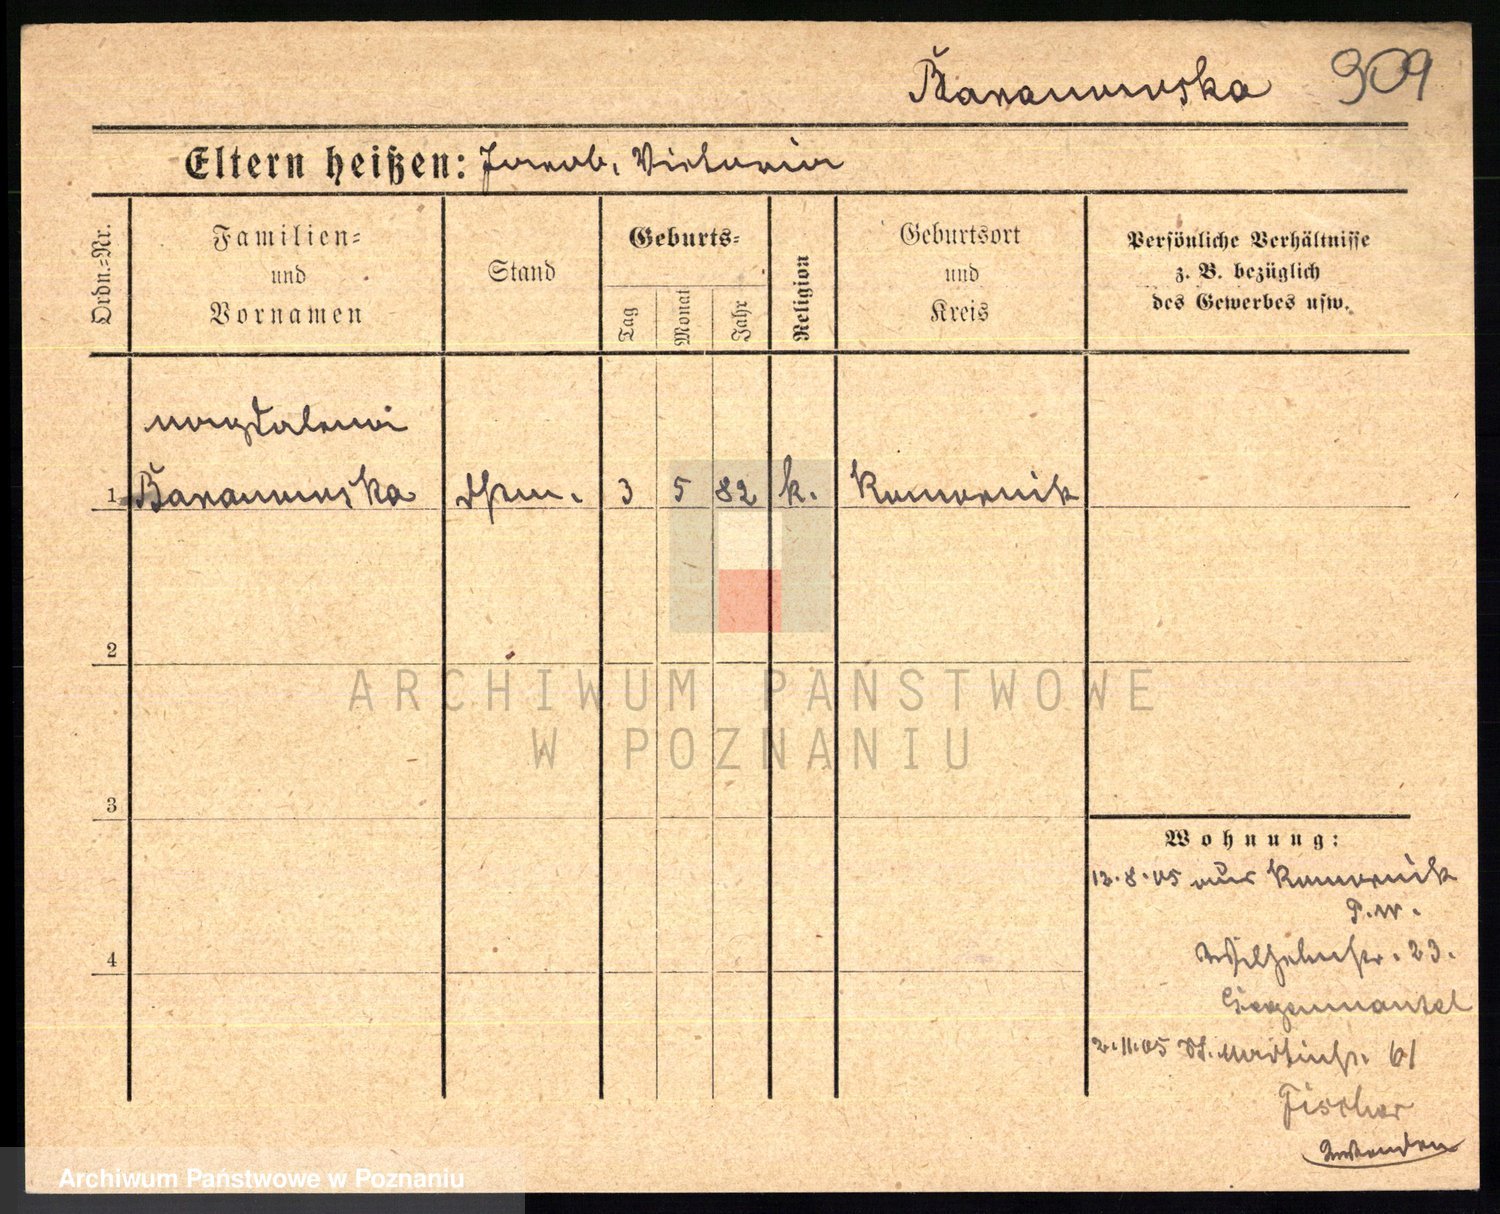 Baranowska 909
Eltern heißen: Jacob, Victoria
Ordn.-Nr.
Familien-
und
Vornamen
Stand
Geburts-
Tag
Monat
Jahr
Religion
Geburtsort
und
Kreis
Persönliche Verhältnisse
z. B. bezüglich
des Gewerbes usw.
Magdalena
1 Baranowska 3 5 82 k. Komornik
2
ARCHIWUM PAŃSTWOWE
W POZNANIU
3
Wohnung:
12.8.05 aus Komornik
P.W.
Wilhelmstr. 23.
4
2.11.05 St. Martinstr. 61
Fischer
Wenden
Archiwum Państwowe w Poznaniu